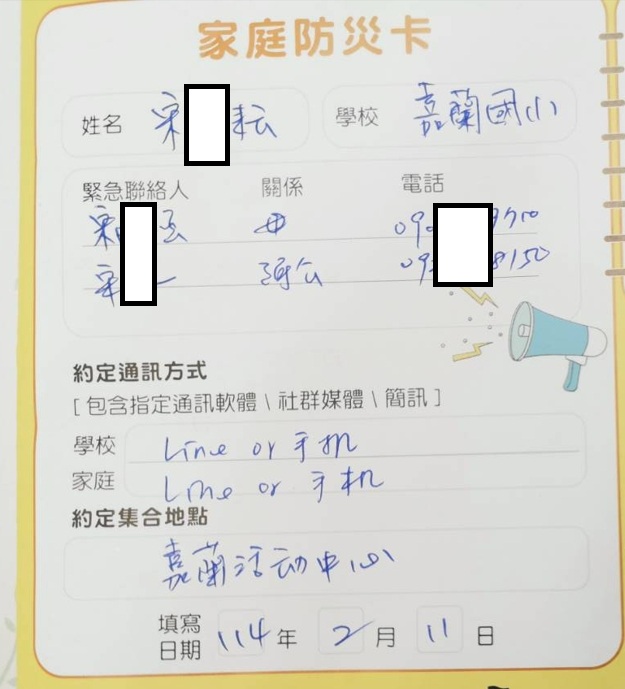 家庭防災卡
姓名 宋 耘 學校 嘉蘭國小
緊急聯絡人 關係 電話
宋 母 09 9710
宋 一 09 8150
約定通訊方式
[ 包含指定通訊軟體 \ 社群媒體 \ 簡訊 ]
學校 Line or 手机
家庭 Line or 手机
約定集合地點
嘉蘭活动中心
填寫
日期 114 年 2 月 11 日